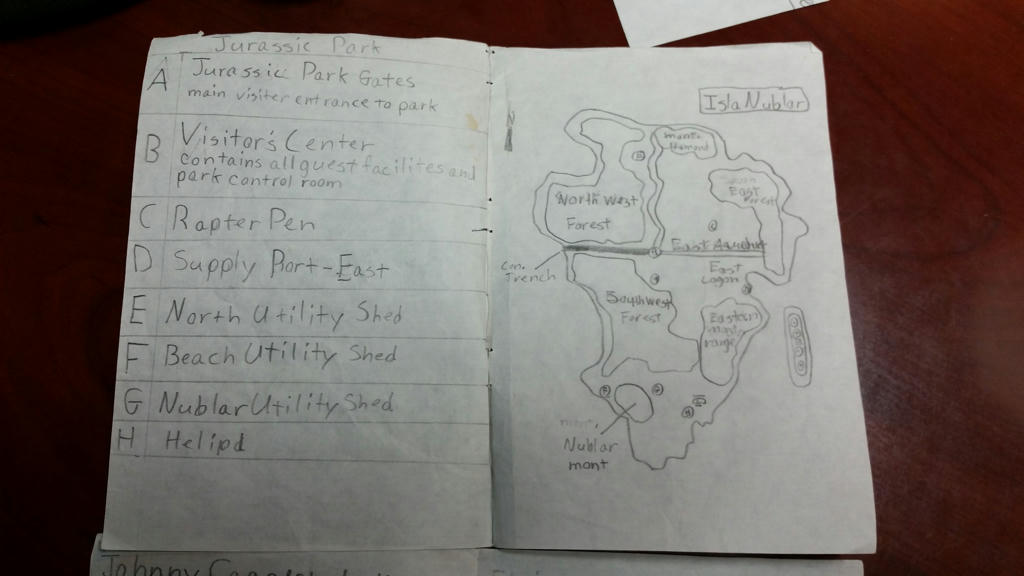 Jurassic Park
A Jurassic Park Gates
main visiter entrance to park
B Visitor's Center
contains all guest facilites and
park control room
C Rapter Pen
D Supply Port-East
E North Utility Shed
F Beach Utility Shed
G Nublar Utility Shed
H Helipd
N
Isla Nublar
North West
Forest
East
East
Lagon
Trench
Southwest
Forest
Eastern
mont
range
mont.
Nublar
mont
Johnny